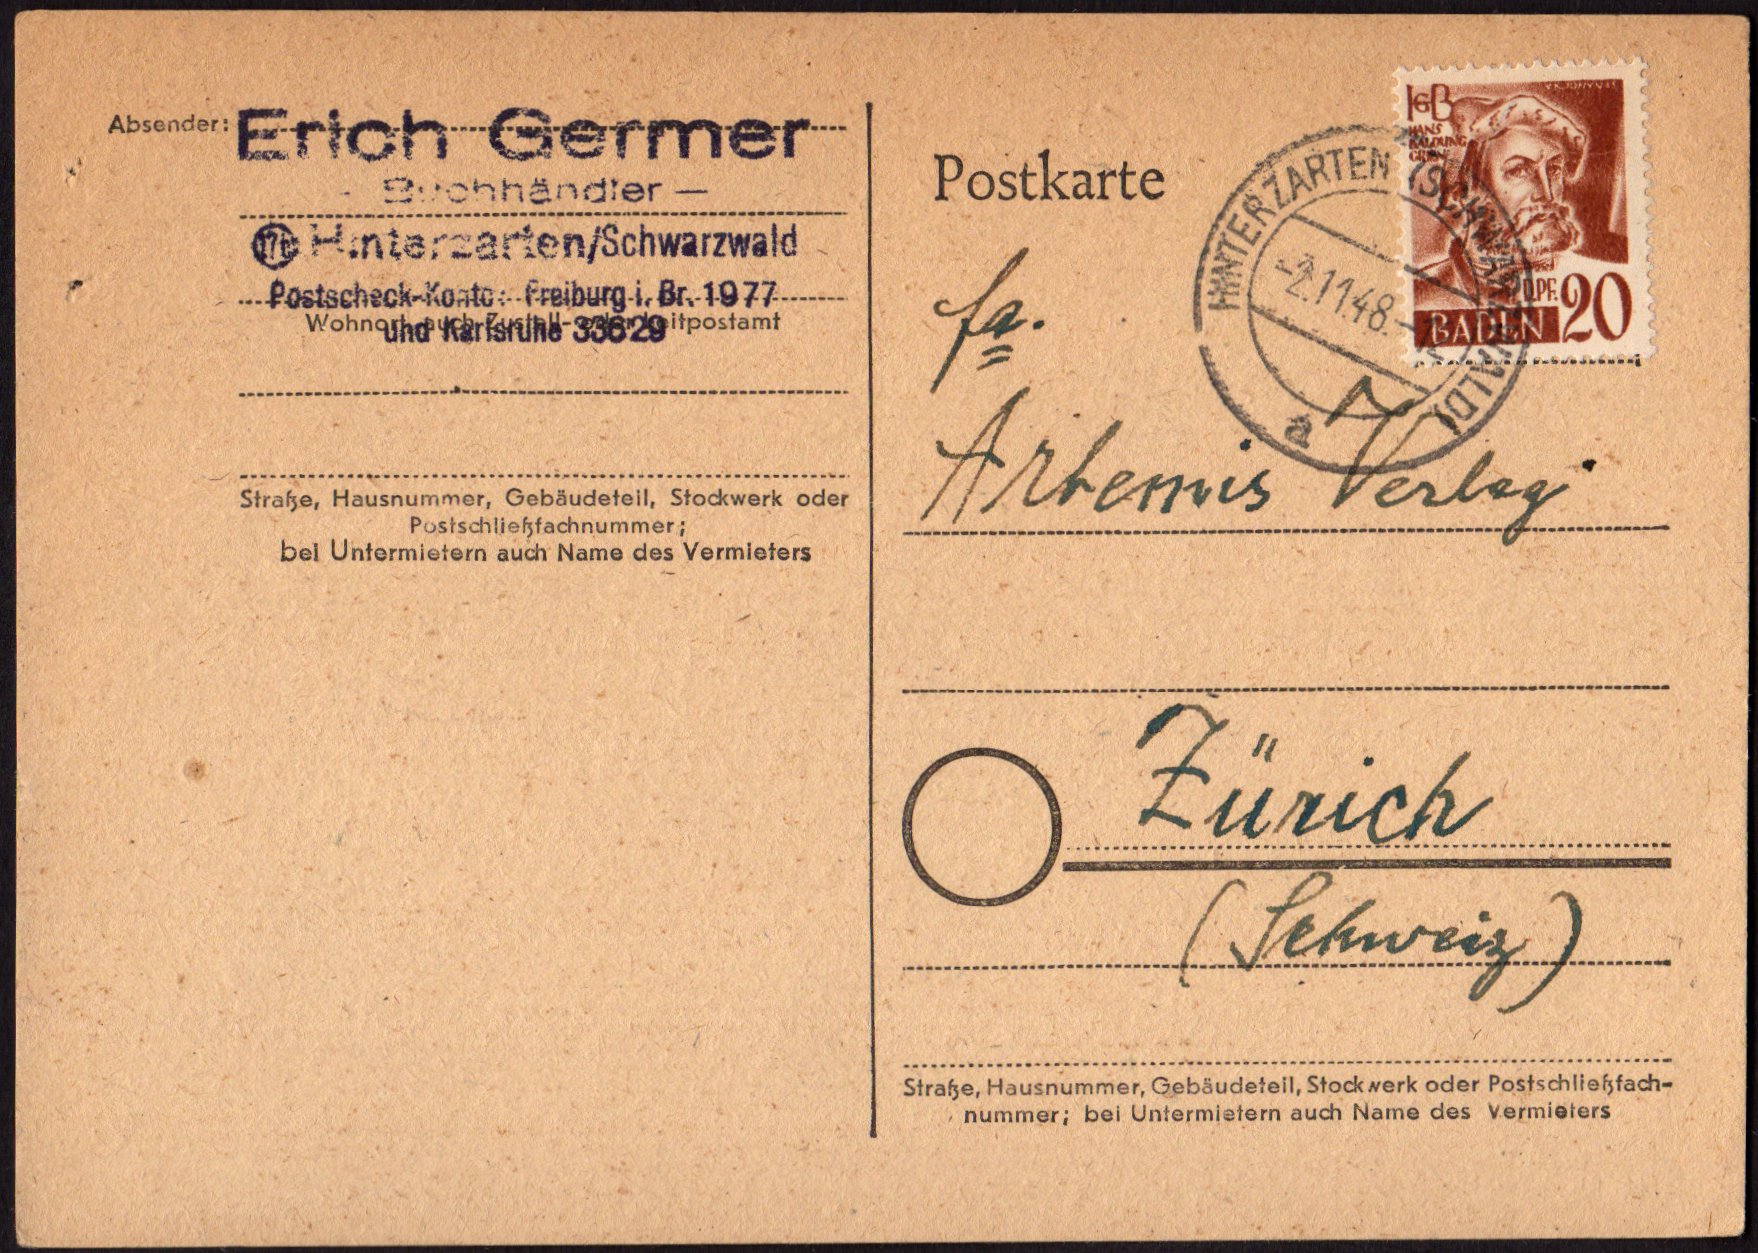 Absender:
Erich Germer
- Buchhändler -
17b Hinterzarten/Schwarzwald
Postscheck-Konto: Freiburg i. Br. 1977
Wohnort, auch Zustell- oder Leitpostamt
und Karlsruhe 33629
Straße, Hausnummer, Gebäudeteil, Stockwerk oder
Postschließfachnummer;
bei Untermietern auch Name des Vermieters
Postkarte
HINTERZARTEN (SCHWARZWALD)
-2.11.48.-
a
HGB
HANS
BALDUNG
GRIEN
D.PF.
BADEN 20
Fa.
Artemis Verlag
Zürich
(Schweiz)
Straße, Hausnummer, Gebäudeteil, Stockwerk oder Postschließfach-
nummer; bei Untermietern auch Name des Vermieters